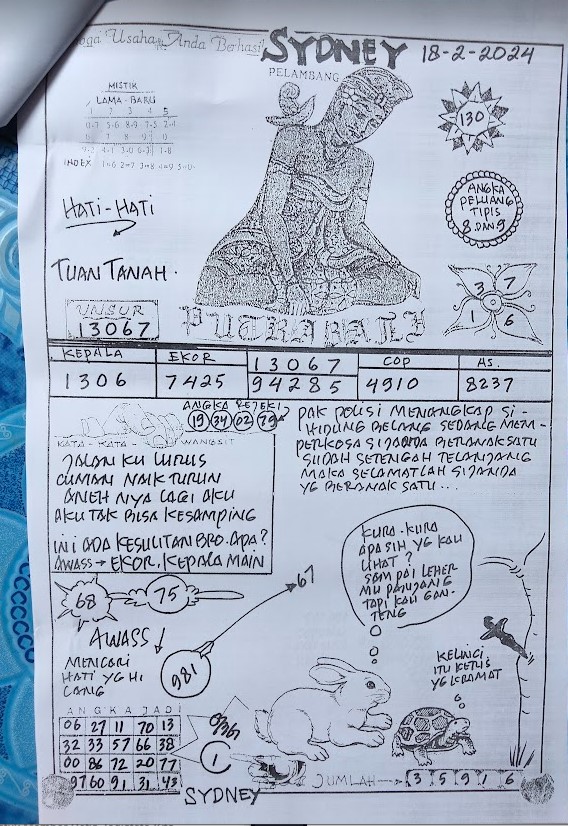 Usaha Anda Berhasil
SYDNEY 18-2-2024
PELAMBANG
MISTIK
LAMA - BARU
1 2 3 4 5
INDEX
130
HATI-HATI
ANGKA
PELUANG
TIPIS
8 DAN 9
TUAN TANAH.
3 7
1 6
UNSUR
13067
PUTRA BALI
KEPALA EKOR 13067 COP AS.
1306 7425 94285 4910 8237
ANGKA REJEKI
19 34 02 79
KATA - KATA WANGSIT
JALAN KU LURUS
CUMAN NAIK TURUN
ANEH NYA LAGI AKU
AKU TAK BISA KESAMPING
INI ADA KESULITAN BRO. APA?
AWASS → EKOR. KEPALA MAIN
PAK POLISI MENANGKAP SI-
HIDUNG BELANG SEDANG MEM-
PERKOSA SIJANDA BERANAK SATU
SUDAH SETENGAH TELANJANG
MAKA SELAMATLAH SIJANDA
YG BERANAK SATU...
KURA-KURA
APA SIH YG KAU
LIHAT?
SAMPAI LEHER
MU PANJANG
TAPI KAU GAN-
TENG
67
68 75
AWASS
981
MENCARI
HATI YG HI
LANG
KELINCI
ITU KERIS
YG KERAMAT
ANGKA JADI
06 27 11 70 13
32 33 57 66 38
00 86 72 20 77
97 60 91 31 43
1
JUMLAH → 3 5 9 1 6
SYDNEY